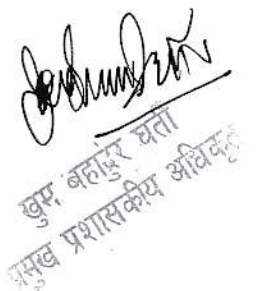 खुम बहादुर घर्ती
प्रमुख प्रशासकीय अधिकृत